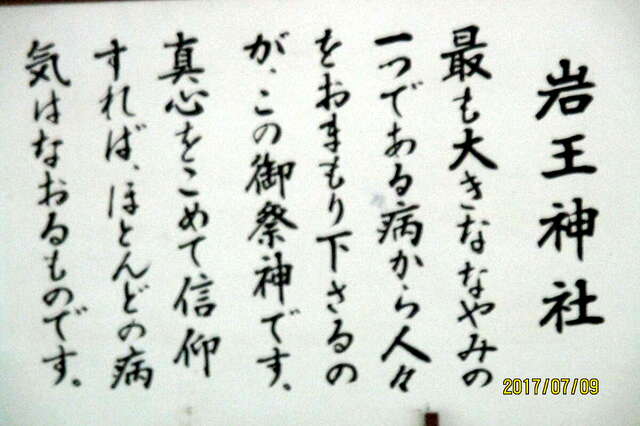 岩王神社
最も大きななやみの
一つである病から人々
をおまもり下さるの
が、この御祭神です。
真心をこめて信仰
すれば、ほとんどの病
気はなおるものです。
2017/07/09